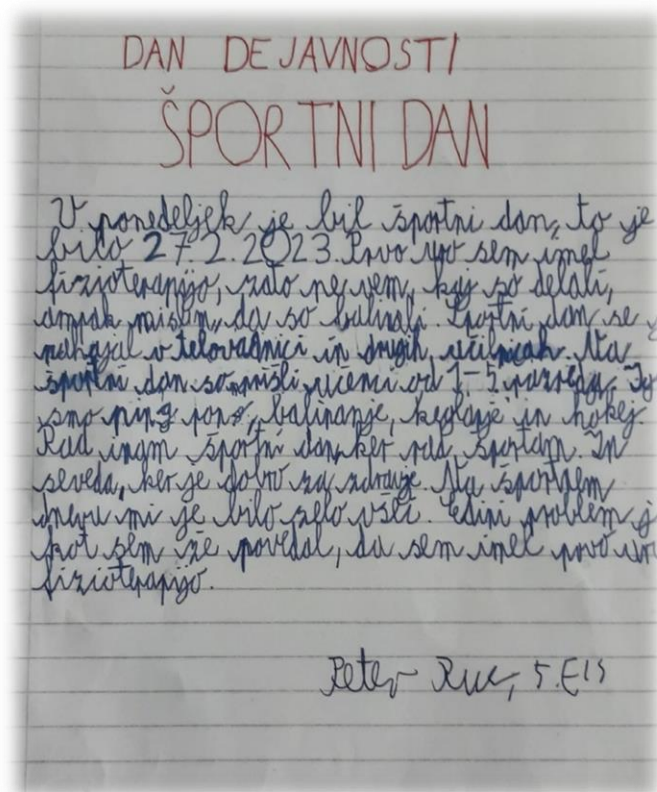 DAN DEJAVNOSTI
ŠPORTNI DAN
V ponedeljek je bil športni dan, to je
bilo 27.2.2023. Prvo uro sem imel
fizioterapijo, zato ne vem, kaj so delali,
ampak mislim, da so balinali. Športni dan se je
nahajal v telovadnici in drugih učilnicah. Na
športni dan so prišli učenci od 1-5 razreda.
smo ping pong, balinanje, kegljanje in hokej.
Rad imam športni dan, ker rad športam. In
seveda, ker je dobro za zdravje. Na športnem
dnevu mi je bilo zelo všeč. Edini problem je
kot sem že povedal, da sem imel prvo uro
fizioterapijo.
Peter 5. EIS